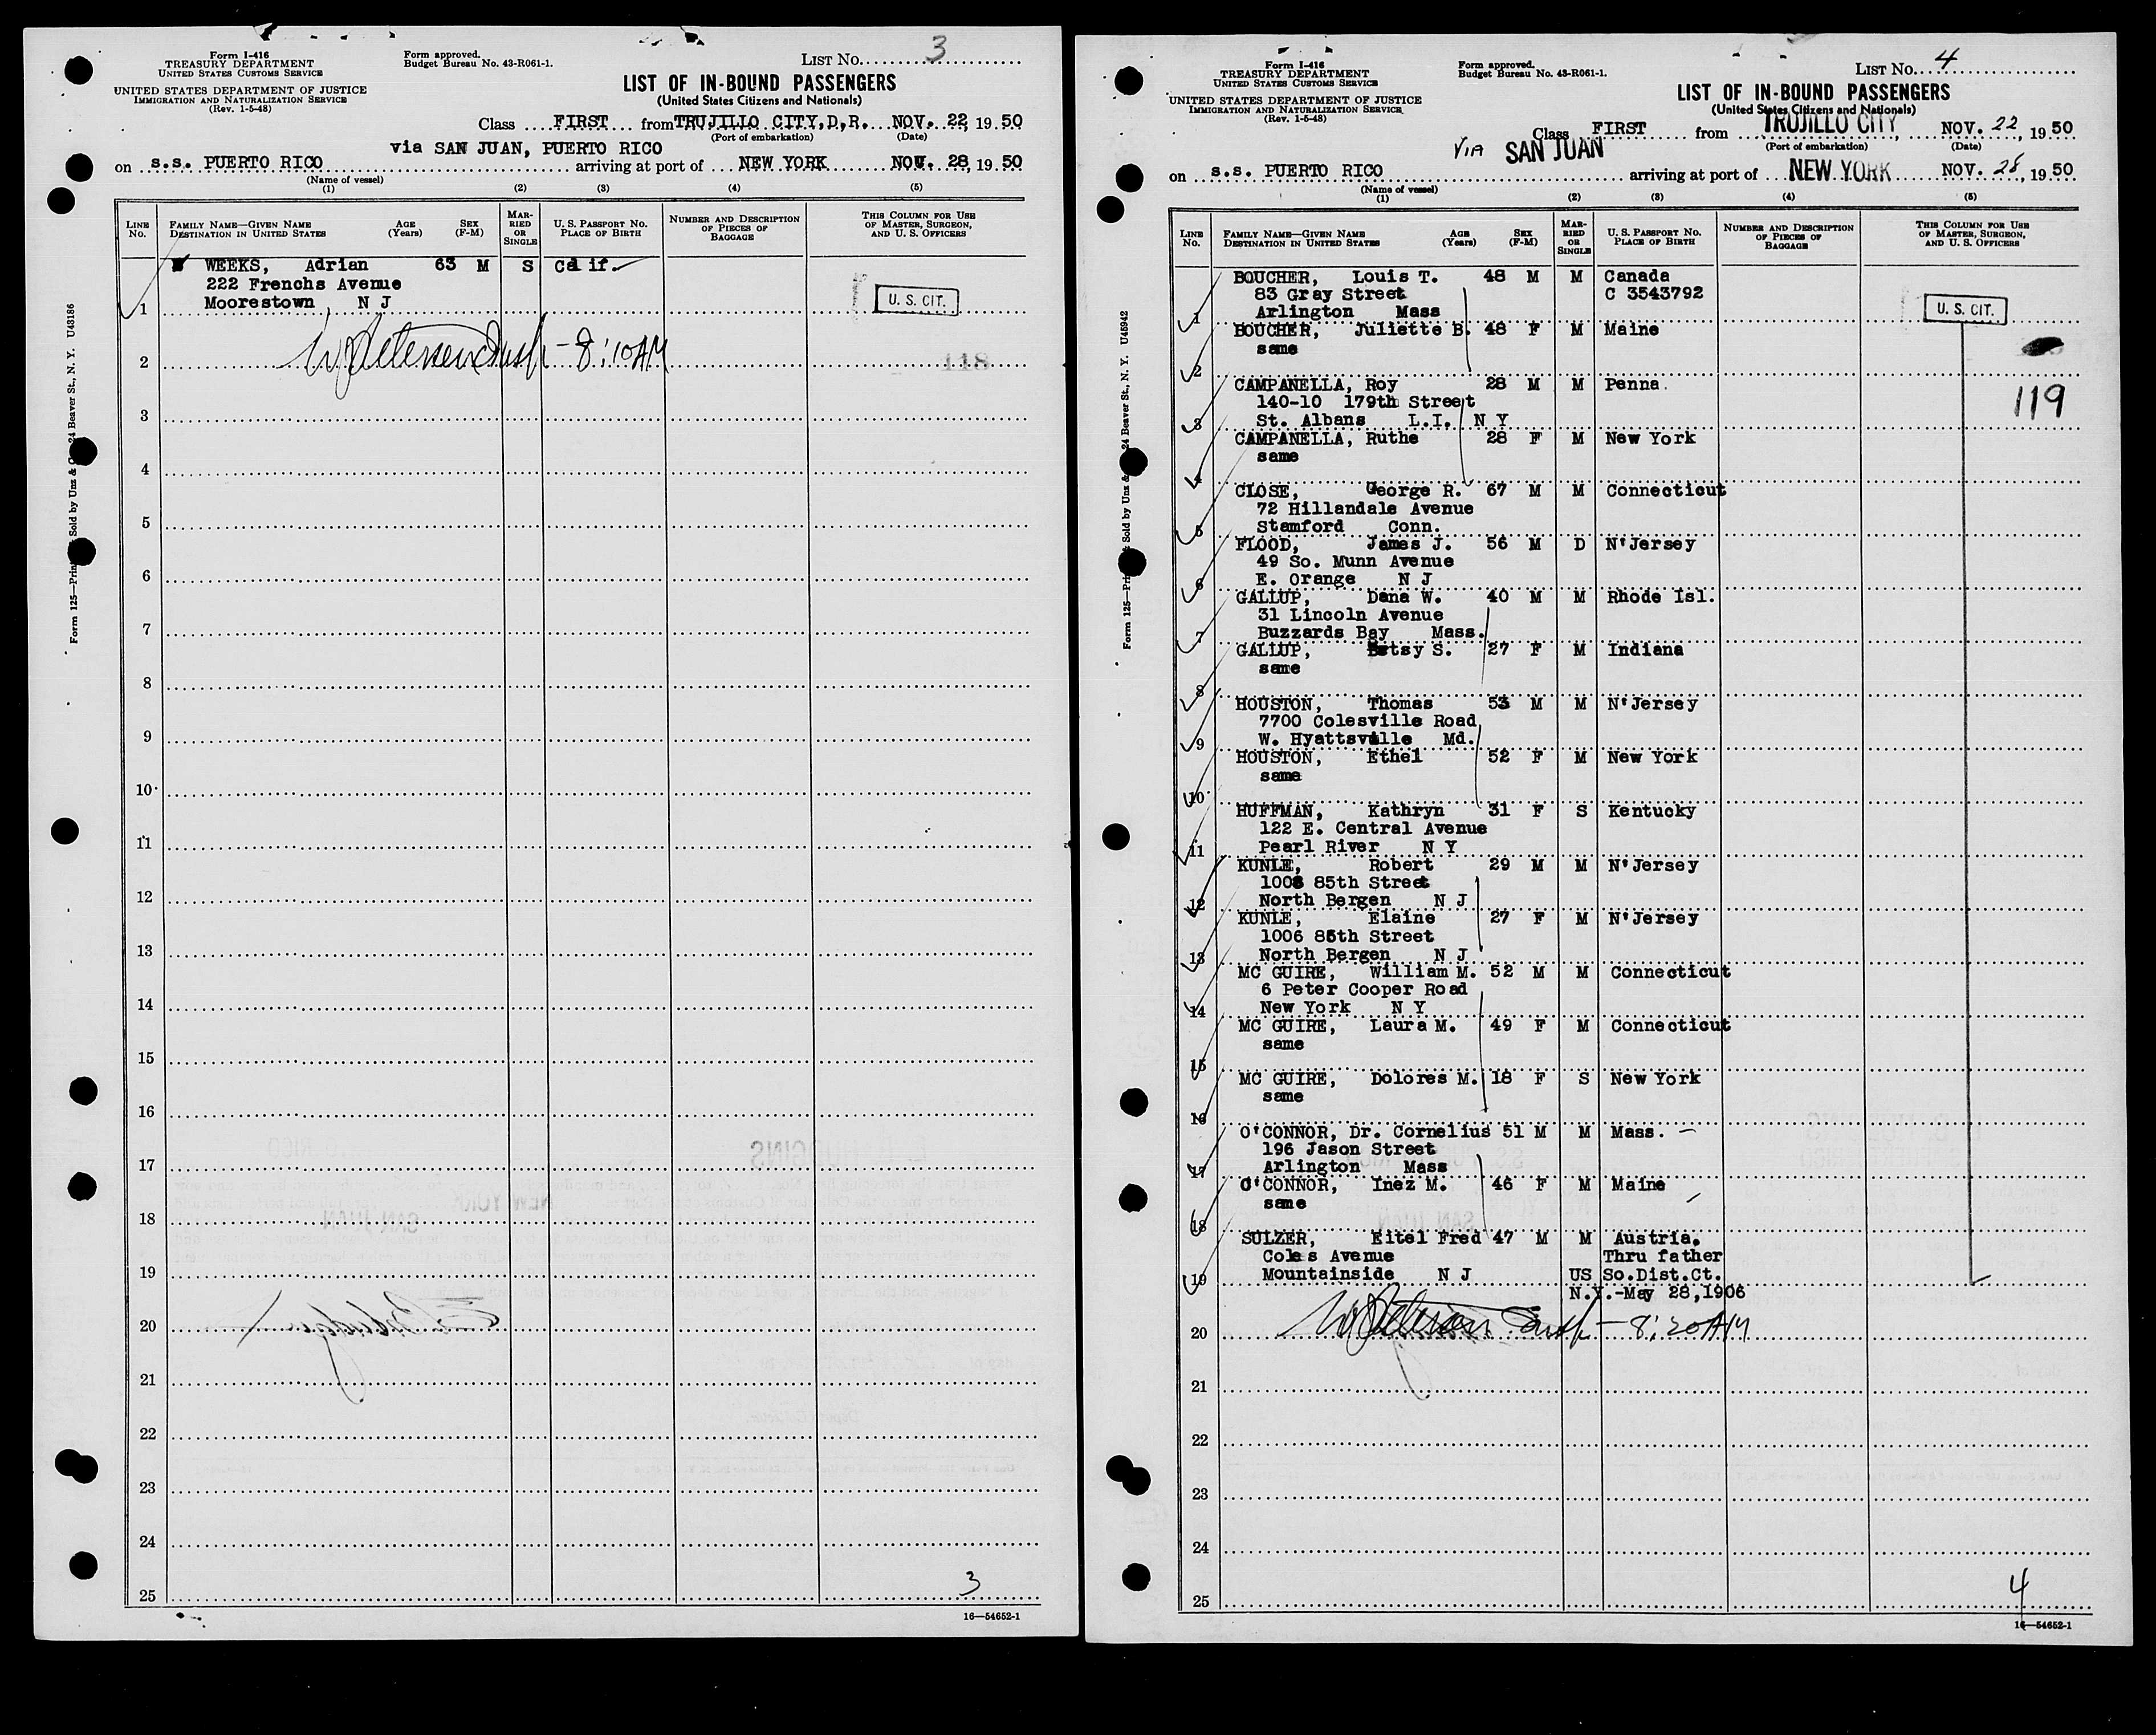 Form I-416
TREASURY DEPARTMENT
UNITED STATES CUSTOMS SERVICE
UNITED STATES DEPARTMENT OF JUSTICE
IMMIGRATION AND NATURALIZATION SERVICE
(Rev. 1-5-48)
Form approved.
Budget Bureau No. 43-R061-1.
LIST No. 3
LIST OF IN-BOUND PASSENGERS
(United States Citizens and Nationals)
Class FIRST from TRUJILLO CITY, D.R. NOV. 22, 19 50
(Port of embarkation) (Date)
via SAN JUAN, PUERTO RICO
on s.s. PUERTO RICO arriving at port of NEW YORK NOV. 28, 19 50
(Name of vessel)
(1) (2) (3) (4) (5)
LINE No.
FAMILY NAME—GIVEN NAME
DESTINATION IN UNITED STATES
AGE (Years)
SEX (F-M)
MARRIED OR SINGLE
U. S. PASSPORT No.
PLACE OF BIRTH
NUMBER AND DESCRIPTION OF PIECES OF BAGGAGE
THIS COLUMN FOR USE OF MASTER, SURGEON, AND U. S. OFFICERS
WEEKS, Adrian 63 M S Calif.
222 Frenchs Avenue
1 Moorestown N J
U. S. CIT.
2 8:10 AM 118
3
4
5
6
7
8
9
10
11
12
13
14
15
16
17
18
19
20
21
22
23
24
25 3
16—54652-1
Form I-416
TREASURY DEPARTMENT
UNITED STATES CUSTOMS SERVICE
UNITED STATES DEPARTMENT OF JUSTICE
IMMIGRATION AND NATURALIZATION SERVICE
(Rev. 1-5-48)
Form approved.
Budget Bureau No. 43-R061-1.
LIST No. 4
LIST OF IN-BOUND PASSENGERS
(United States Citizens and Nationals)
Class FIRST from TRUJILLO CITY, NOV. 22, 19 50
(Port of embarkation) (Date)
VIA SAN JUAN
on s.s. PUERTO RICO arriving at port of NEW YORK NOV. 28, 19 50
(Name of vessel)
(1) (2) (3) (4) (5)
LINE No.
FAMILY NAME—GIVEN NAME
DESTINATION IN UNITED STATES
AGE (Years)
SEX (F-M)
MARRIED OR SINGLE
U. S. PASSPORT No.
PLACE OF BIRTH
NUMBER AND DESCRIPTION OF PIECES OF BAGGAGE
THIS COLUMN FOR USE OF MASTER, SURGEON, AND U. S. OFFICERS
BOUCHER, Louis T. 48 M M Canada
83 Gray Street C 3543792
1 Arlington Mass
U. S. CIT.
BOUCHER, Juliette B. 48 F M Maine
same
2
CAMPANELLA, Roy 28 M M Penna.
140-10 179th Street
119
3 St. Albans L.I. N Y
CAMPANELLA, Ruthe 28 F M New York
same
4
CLOSE, George R. 67 M M Connecticut
72 Hillandale Avenue
5 Stamford Conn.
FLOOD, James J. 56 M D N'Jersey
49 So. Munn Avenue
6 E. Orange N J
GALLUP, Dana W. 40 M M Rhode Isl.
31 Lincoln Avenue
7 Buzzards Bay Mass.
GALLUP, Betsy S. 27 F M Indiana
same
8
HOUSTON, Thomas 53 M M N'Jersey
7700 Colesville Road
9 W. Hyattsville Md.
HOUSTON, Ethel 52 F M New York
same
10
HUFFMAN, Kathryn 31 F S Kentucky
122 E. Central Avenue
11 Pearl River N Y
KUNLE, Robert 29 M M N'Jersey
85th Street
12 North Bergen N J
KUNLE, Elaine 27 F M N'Jersey
1006 85th Street
13 North Bergen N J
MC GUIRE, William M. 52 M M Connecticut
6 Peter Cooper Road
14 New York N Y
MC GUIRE, Laura M. 49 F M Connecticut
same
15
MC GUIRE, Dolores M. 18 F S New York
same
16
O'CONNOR, Dr. Cornelius 51 M M Mass.
196 Jason Street
17 Arlington Mass
O'CONNOR, Inez M. 46 F M Maine
same
18
SULZER, Eitel Fred 47 M M Austria.
Coles Avenue Thru father
19 Mountainside N J US So.Dist.Ct.
N.Y.-May 28,1906
20 8:20 AM
21
22
23
24
25 4
16—54652-1